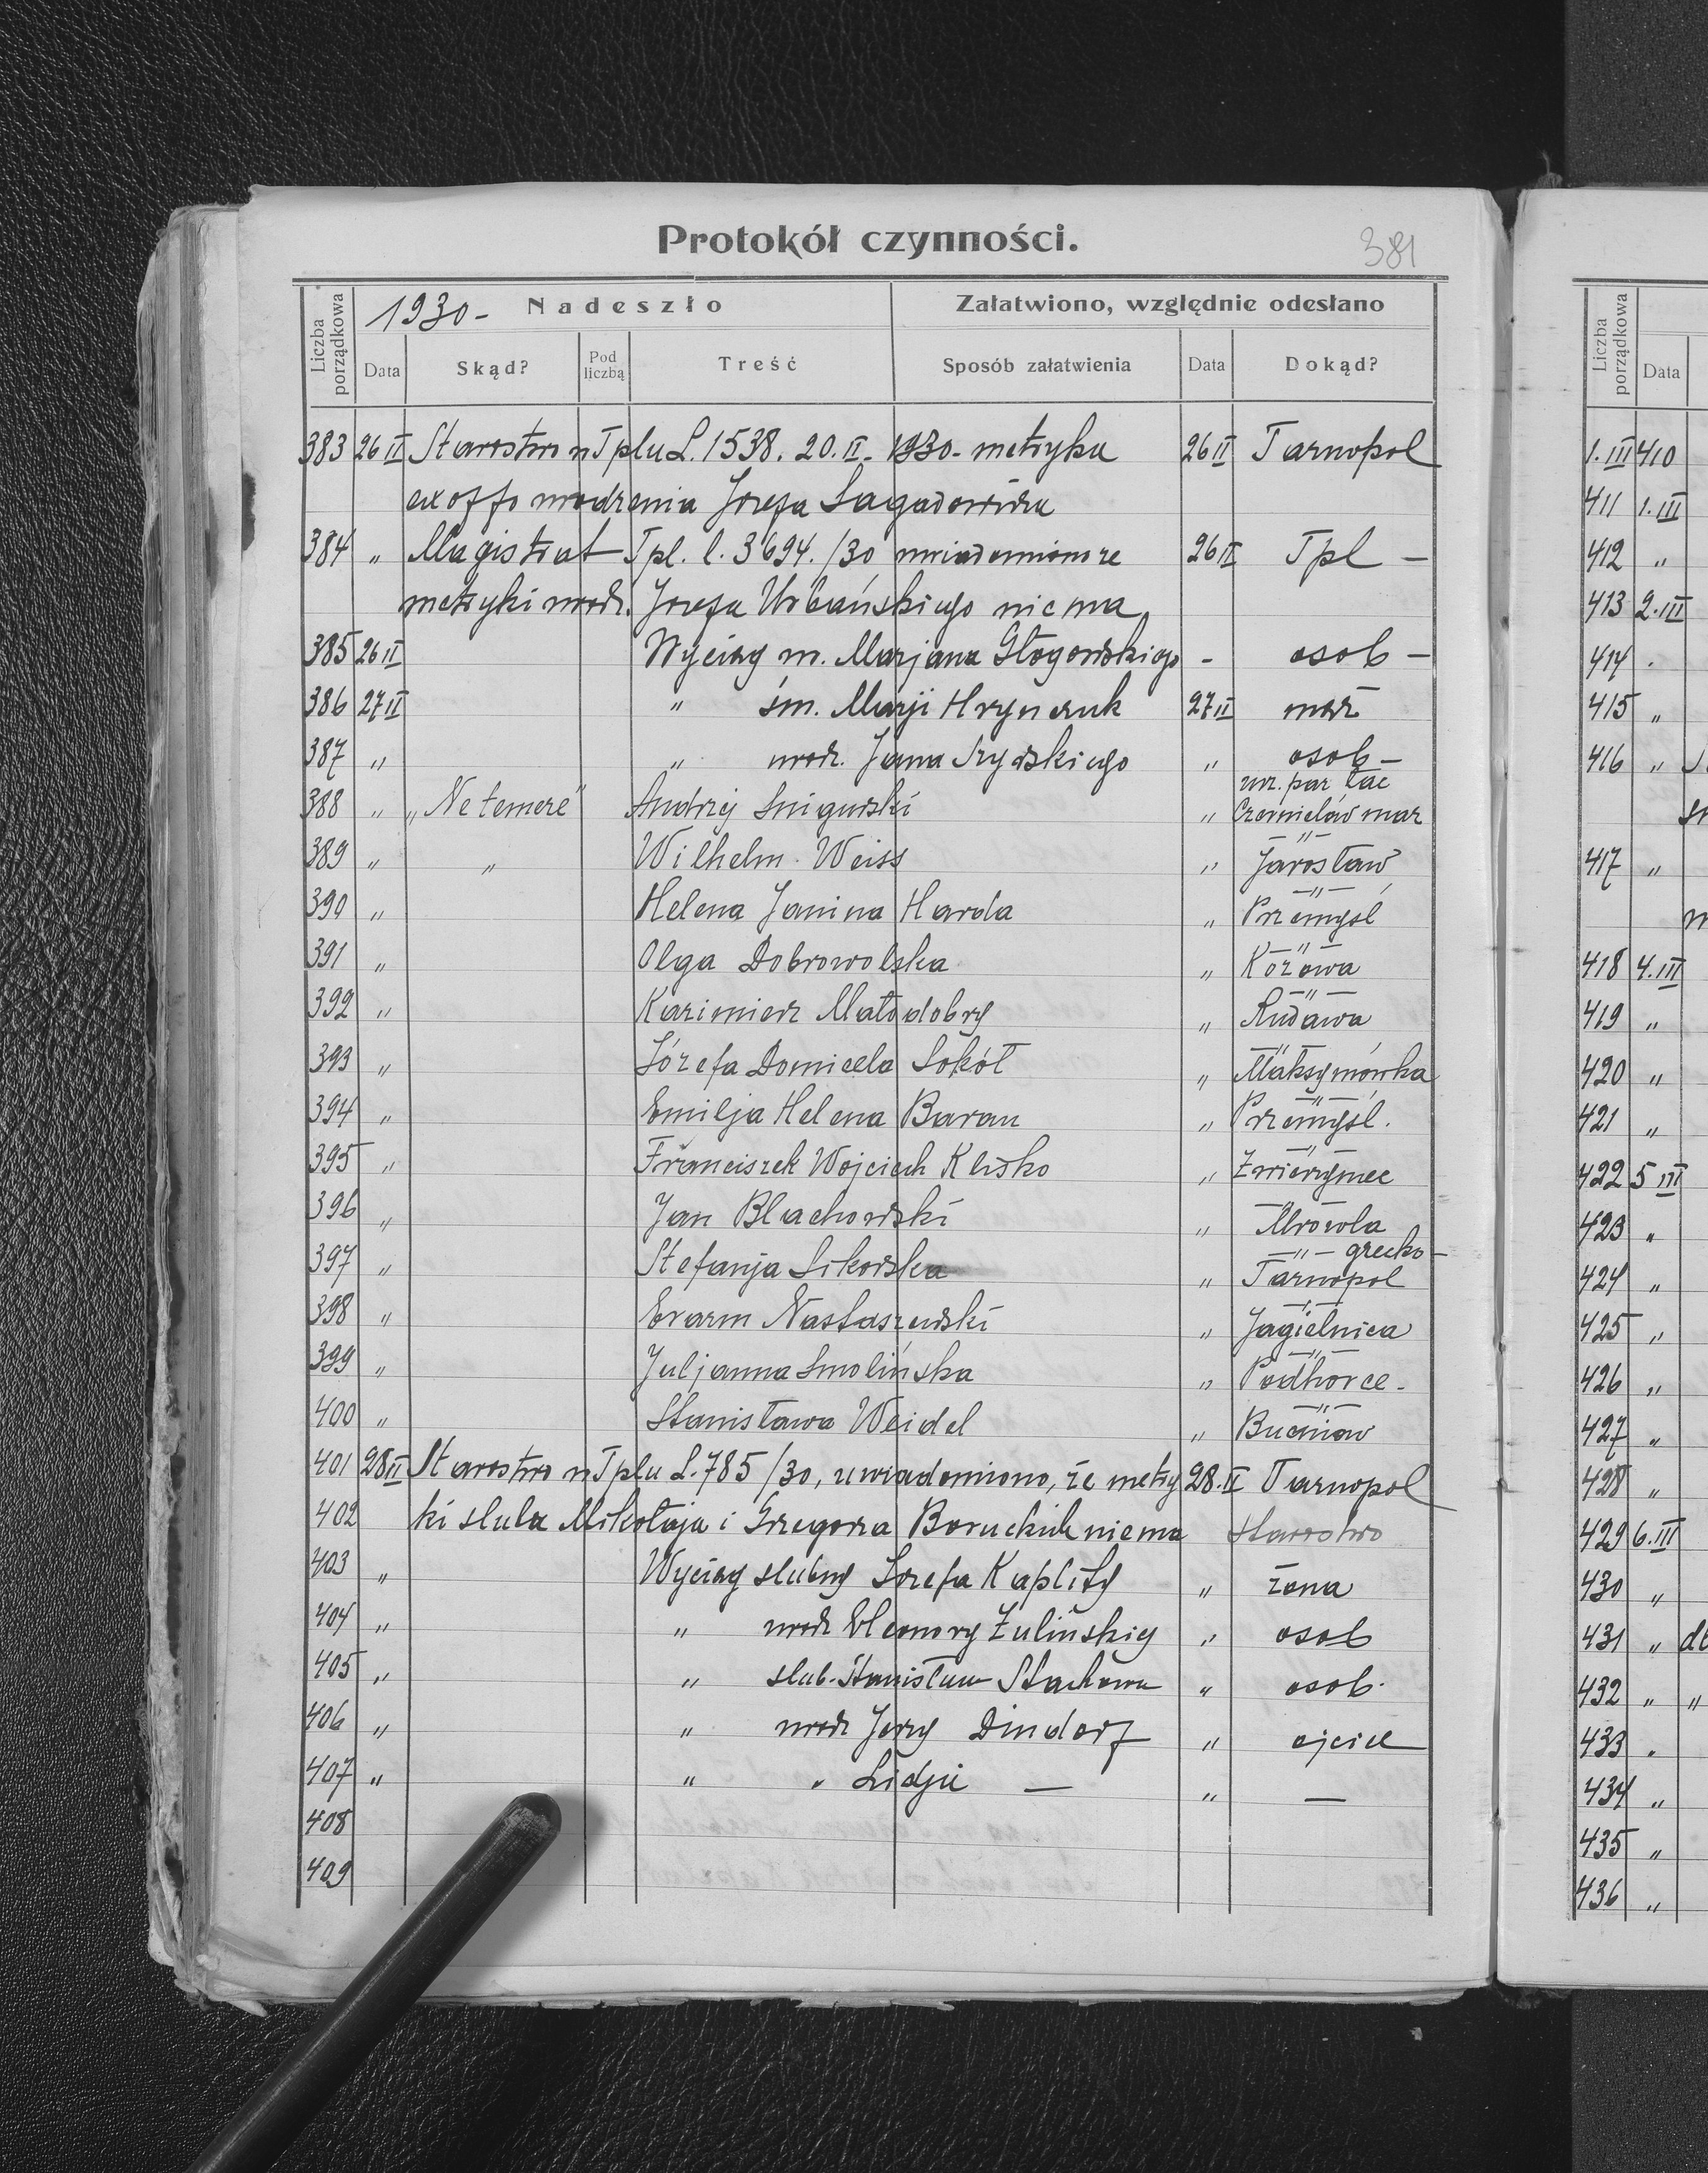 Protokół czynności.
381
Liczba porządkowa
1930 - Nadeszło
Załatwiono, względnie odesłano
Data Skąd? Pod liczbą Treść Sposób załatwienia Data Dokąd?
383 26 II Starostwo w Tplu L. 1538. 20. II. 1930 - metryka 26 II Tarnopol
ex offo urodzenia Józefa
384 " Magistrat Tpl. l. 3694./30 uwiadomiono że 26 II Tpl -
metryki urodz. Józefa Urbańskiego nie ma
385 26 II Wyciąg m. Marjana Głogowskiego - osob -
386 27 II " śm. Marji Hrynczuk 27 II mąż
387 " " urodz. Jana " osob -
urz. par łac
388 " "Ne temere" Andrzej Snigurski " Czernielów maz
389 " " Wilhelm Weiss " -"- Jarosław
390 " Helena Janina Harda " -"- Przemyśl
391 " Olga Dobrowolska " -"- Kozowa
392 " Kazimierz Małodobry " -"- Rudawa
393 " Józefa Domicela Sokół " -"- Maksymówka
394 " Emilja Helena Baran " -"- Przemyśl.
395 " Franciszek Wojciech " -"- Zwierzyniec
396 " Jan Blachowski " -"- Mrowla
397 " Stefanja Sikorska " -"- grecko- Tarnopol
398 " Nastaszewski " -"- Jagielnica
399 " Juljanna Smolińska " -"- Podhorce -
400 " Stanisława Weidel " -"- Bucniow
401 28 II Starostwo w Tplu L. 785/30, uwiadomiono, że metry 28. II Tarnopol
402 ki slubu Mikołaja i Grzegorza Boruckich niema starostwo
403 " Wyciąg slubny Józefa Kaplity " żona
404 " " urodz Eleonory Żulińskiej " osob
405 " " slub. Stanisława " osob.
406 " " urodz Jerzy Dindorf " ojciec
407 " " " Lidji — " —
408
409
Liczba porządkowa
Data
1. III 410
411 1. III
412 "
413 2. III
414 .
415 "
416 "
417 "
418 4. III
419 "
420 "
421 "
422 5 III
423 "
424 "
425 "
426 "
427 "
428 "
429 6. III
430 "
431 "
432 " "
433 "
434 "
435 "
436 "